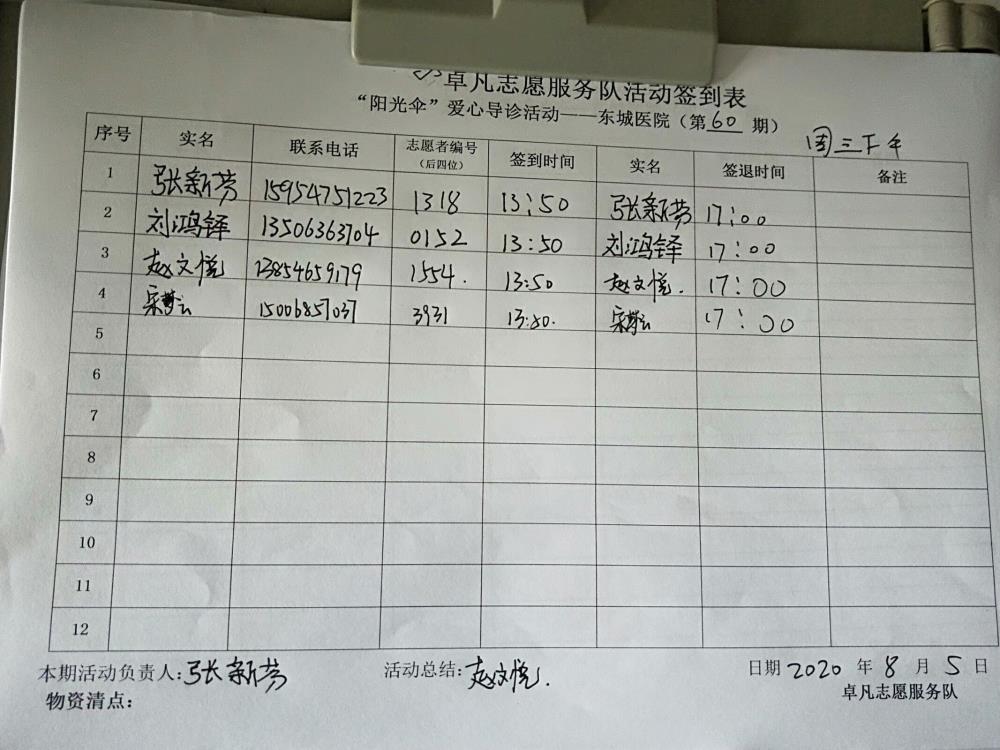 卓凡志愿服务队活动签到表
“阳光伞”爱心导诊活动——东城医院（第60期）
周三下午
序号 实名 联系电话 志愿者编号（后四位） 签到时间 实名 签退时间 备注
1 张新芳 15954751223 1318 13:50 张新芳 17:00
2 刘鸿铎 13506363704 0152 13:50 刘鸿铎 17:00
3 赵文悦 13854659179 1554. 13:50 赵文悦. 17:00
4 宋梦云 15006857037 3931 13:50. 宋梦云 17:00
5
6
7
8
9
10
11
12
本期活动负责人:张新芳 活动总结:赵文悦. 日期 2020 年 8 月 5 日
物资清点： 卓凡志愿服务队